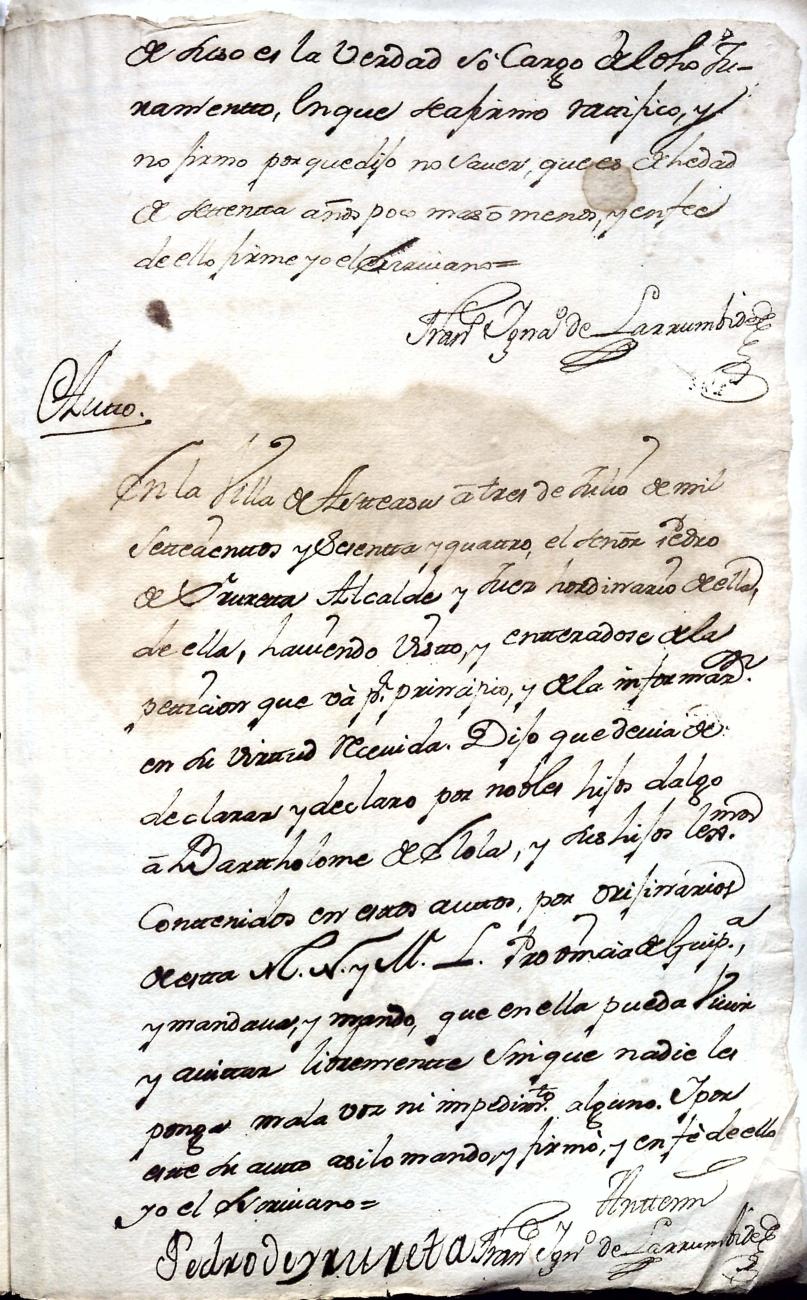 de suso es la Verdad só Cargo del dho Ju-
ramentto, en que seafirmo rattifico, y
no firmo porquedijo no Saver, que es dehedad
de settentta años poco mas ò menos, y enfee
de ello firme yo el Escrivano=
Franco Ignao de Larrumbide
Autto.
En la Villa de Asteasu à tres de Julio de mil
Settecienttos y Sesentta y quattro, el Señor Pedro
de Yruretta Alcalde y Juez hordinario de ella,
de ella, haviendo Visto, y entteradose de la
petticion que và pr. principio, y de la informaon.
en su virttud Recivida. Dijo que devia de
declarar y declaro por nobles hijos dalgo
à Bartholome de Elola, y sus hijos lexmos.
Conttenidos en estos auttos, por orijinarios
de estta M. N. y M. L. Provincia de Guipa.,
y mandava, y mando, que en ella pueda Vivir
y avittar libremente sin que nadie les
ponga mala voz ni impedimto. alguno. Y por
este su autto asi lo mando, y firmò, y en fè de ello
yo el Escrivano=
Anttemi
Pedro de yrureta Franco Ignº de Larrumbide